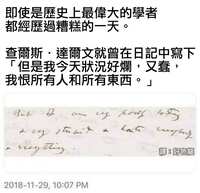 即使是歷史上最偉大的學者
都經歷過糟糕的一天。
查爾斯．達爾文就曾在日記中寫下
「但是我今天狀況好爛，又蠢，
我恨所有人和所有東西。」
But I am very poorly today
& very stupid & hate everybody
& everything
2018-11-29, 10:07 PM